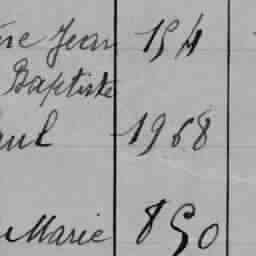 Jean 194
Baptiste
1968
Marie 890